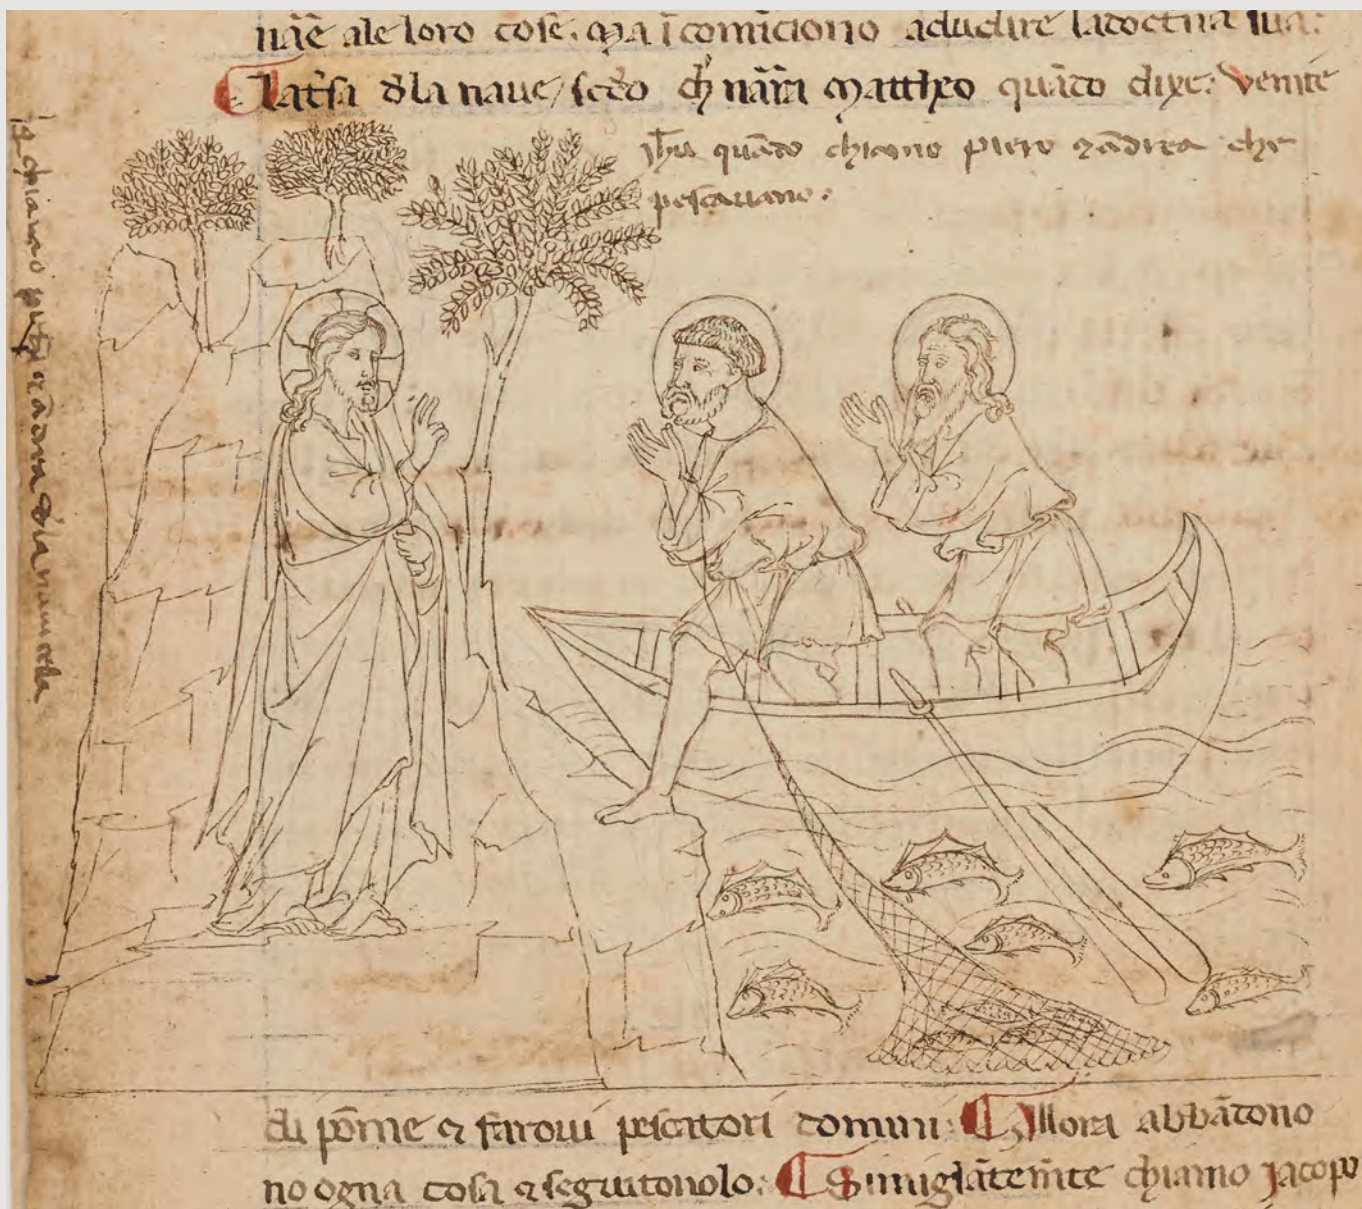 nāe ale loro cose. Ma ī comīciono aduđire la doctrīa sua.
La t̄sa d̄la naue / sc̄do ch̄ nāra Mattheo quādo dixe: Venite
Jhū quādo chiamo piero ⁊ ādrea che
pescauano:
q̄ chiamo piero ⁊ ādrea d̄la nauicella
di pōme ⁊ faroui pescatori domini: Allora abbātono
no ogna cosa ⁊ seguitonolo: Simigłātem̄te chiamo Jacopo